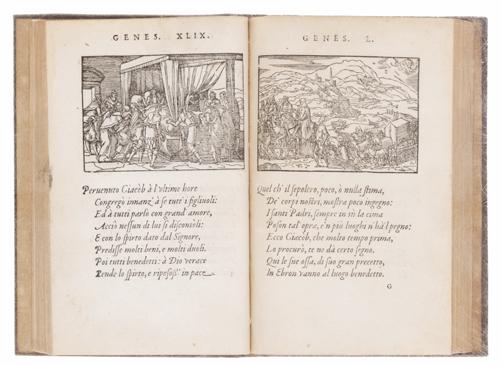 GENES. XLIX.
Pervenuto Giacòb à l'ultime hore
Congregò innanz' à se tutt'i figliuoli:
Ed à tutti parlò con grand' amore,
Acciò nessun di lui si disconsoli:
E con lo spirto dato dal Signore,
Predisse molti beni, e molti duoli.
Poi tutti benedetti: à Dio verace
Rende lo spirto, e riposass' in pace
GENES. L.
Quel ch'il sepolcro, poco, ò nulla stima,
De' corpi nostri, mostra poco ingegno:
I santi Padri, sempre in sù la cima
Poson tal opra, e'n più luoghi n'hà'l pegno:
Ecco Giacòb, che molto tempo prima,
Lo procurò, te ne dà certo segno.
Qui le sue ossa, di suo gran precetto,
In Ebron vanno al luogo benedetto.
G